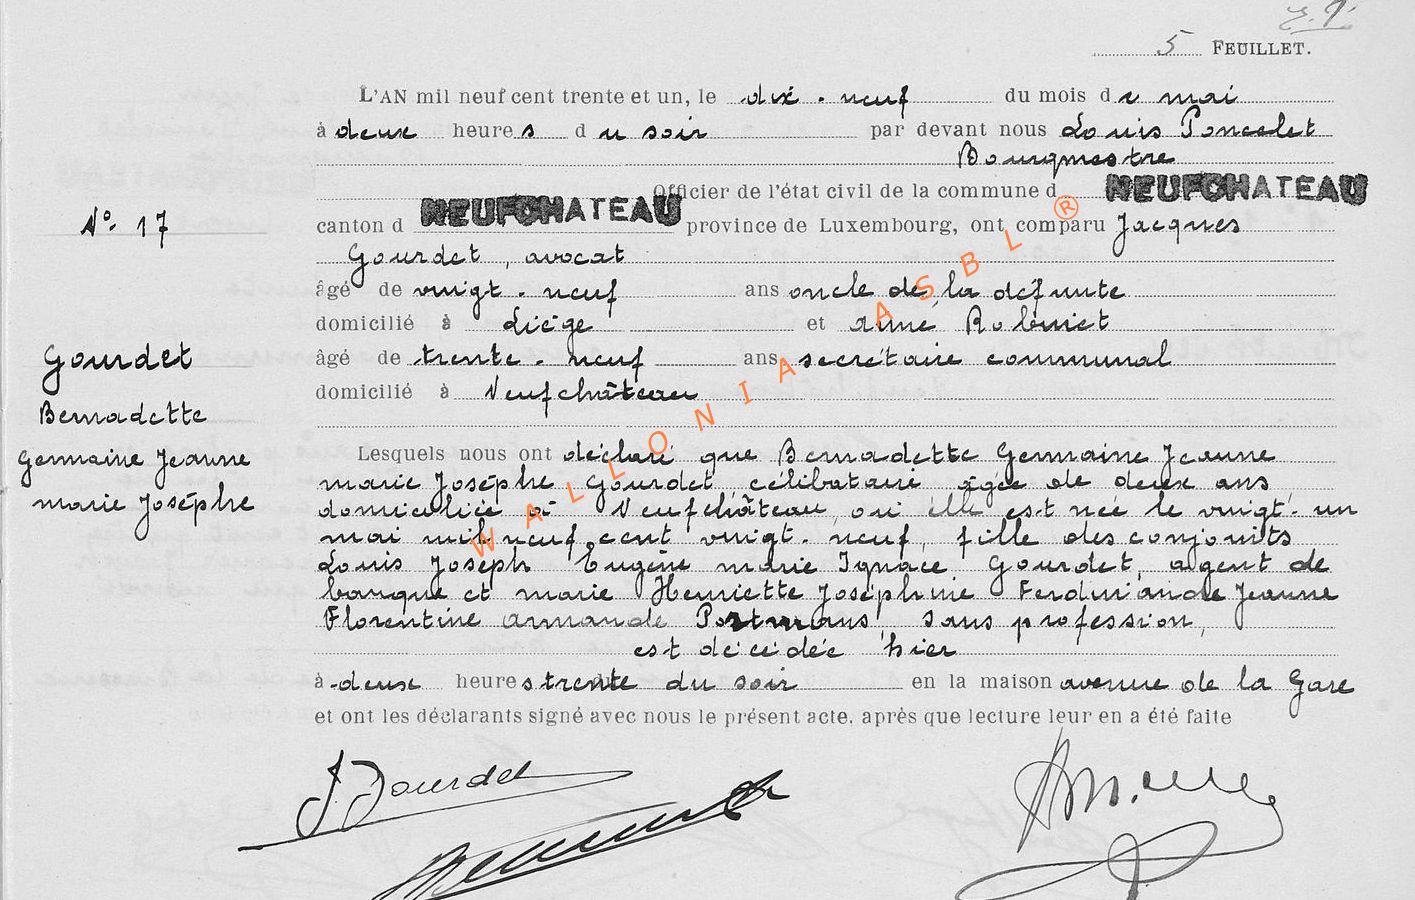 5 FEUILLET.
L'AN mil neuf cent trente et un, le dix-neuf du mois de mai
à deux heures du soir par devant nous Louis Poncelet
Bourgmestre
Officier de l'état civil de la commune d NEUFCHATEAU
N° 17
canton d NEUFCHATEAU province de Luxembourg, ont comparu Jacques
Gourdet, avocat
âgé de vingt-neuf ans oncle de la défunte
domicilié à Liège et Aimé Robinet
Gourdet
Bernadette
Germaine Jeanne
Marie Josèphe
âgé de trente-neuf ans secrétaire communal
domicilié à Neufchâteau
Lesquels nous ont déclaré que Bernadette Germaine Jeanne
Marie Josèphe Gourdet célibataire âgée de deux ans,
domiciliée à Neufchâteau, où elle est née le vingt-un
mai mil neuf cent vingt-neuf, fille des conjoints
Louis Joseph Eugène Marie Ignace Gourdet, agent de
banque et Marie Henriette Joséphine Ferdinande Jeanne
Florentine Armande, sans profession,
est décédée hier
à deux heures trente du soir en la maison avenue de la Gare
et ont les déclarants signé avec nous le présent acte, après que lecture leur en a été faite
J. Gourdet
WALLONIA ASBL ®